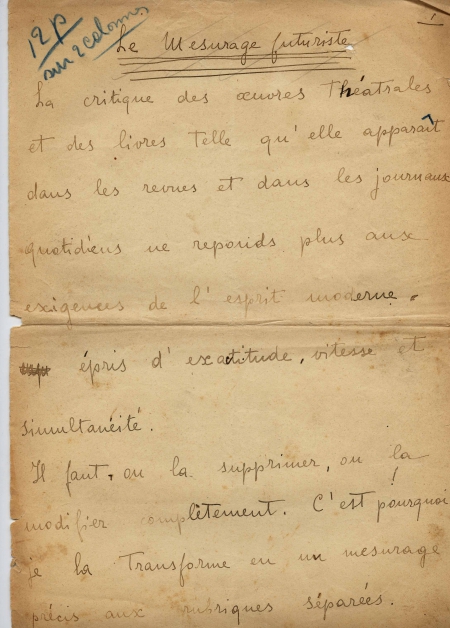 12 p
sur 2 colonnes
1
Le Mesurage futuriste
La critique des œuvres théatrales
et des livres telle qu'elle apparaît
dans les revues et dans les journaux
quotidiens ne reponds plus aux
exigences de l'esprit moderne
épris d'exatitude, vitesse et
simultanéité.
Il faut, ou la supprimer, ou la
modifier complètement. C'est pourquoi
je la transforme en un mesurage
précis aux rubriques séparées.